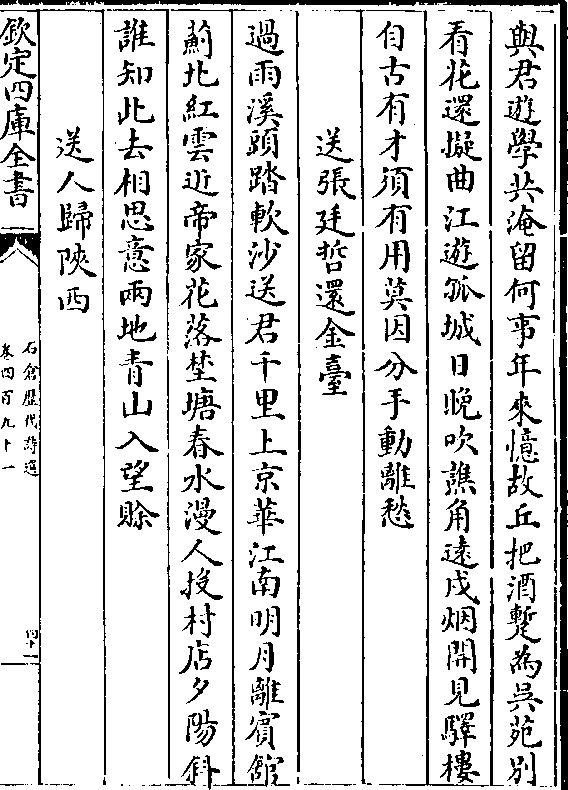 與君遊學共淹留何事年來憶故丘把酒蹔為吳苑别
看花還擬曲江遊孤城日晚吹譙角遠戍烟開見驛樓
自古有才須有用莫因分手動離愁
送張廷哲還金臺
過雨溪頭踏軟沙送君千里上京華江南明月離賔館
薊北紅雲近帝家花落埜塘春水漫人投村店夕陽斜
誰知此去相思意兩地青山入望賖
送人歸陜西
欽定四庫全書
石倉歴代詩選
卷四百九十一
四十一